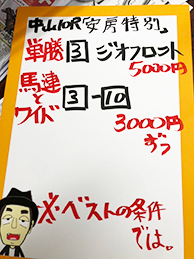 中山10R 安房特別
単勝 3 ジオフロント
5000円
馬連とワイド 3-10
3000円ずつ
※ベストの条件では。